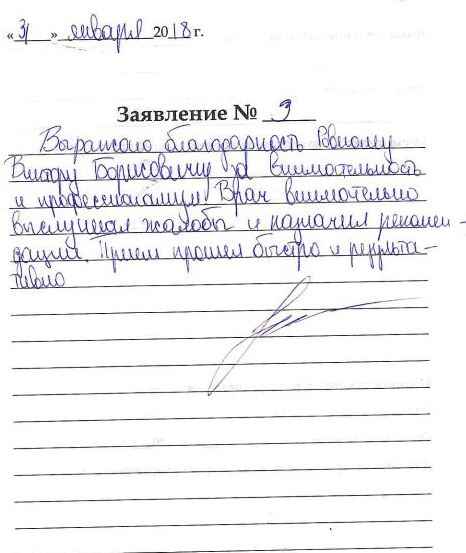 «31» января 2018 г.
Заявление № 3
Выражаю благодарность Ровному
Виктору Борисовичу за внимательность
и профессионализм. Врач внимательно
выслушал жалобы и назначил рекомен-
дации. Прием прошел быстро и результа-
тивно